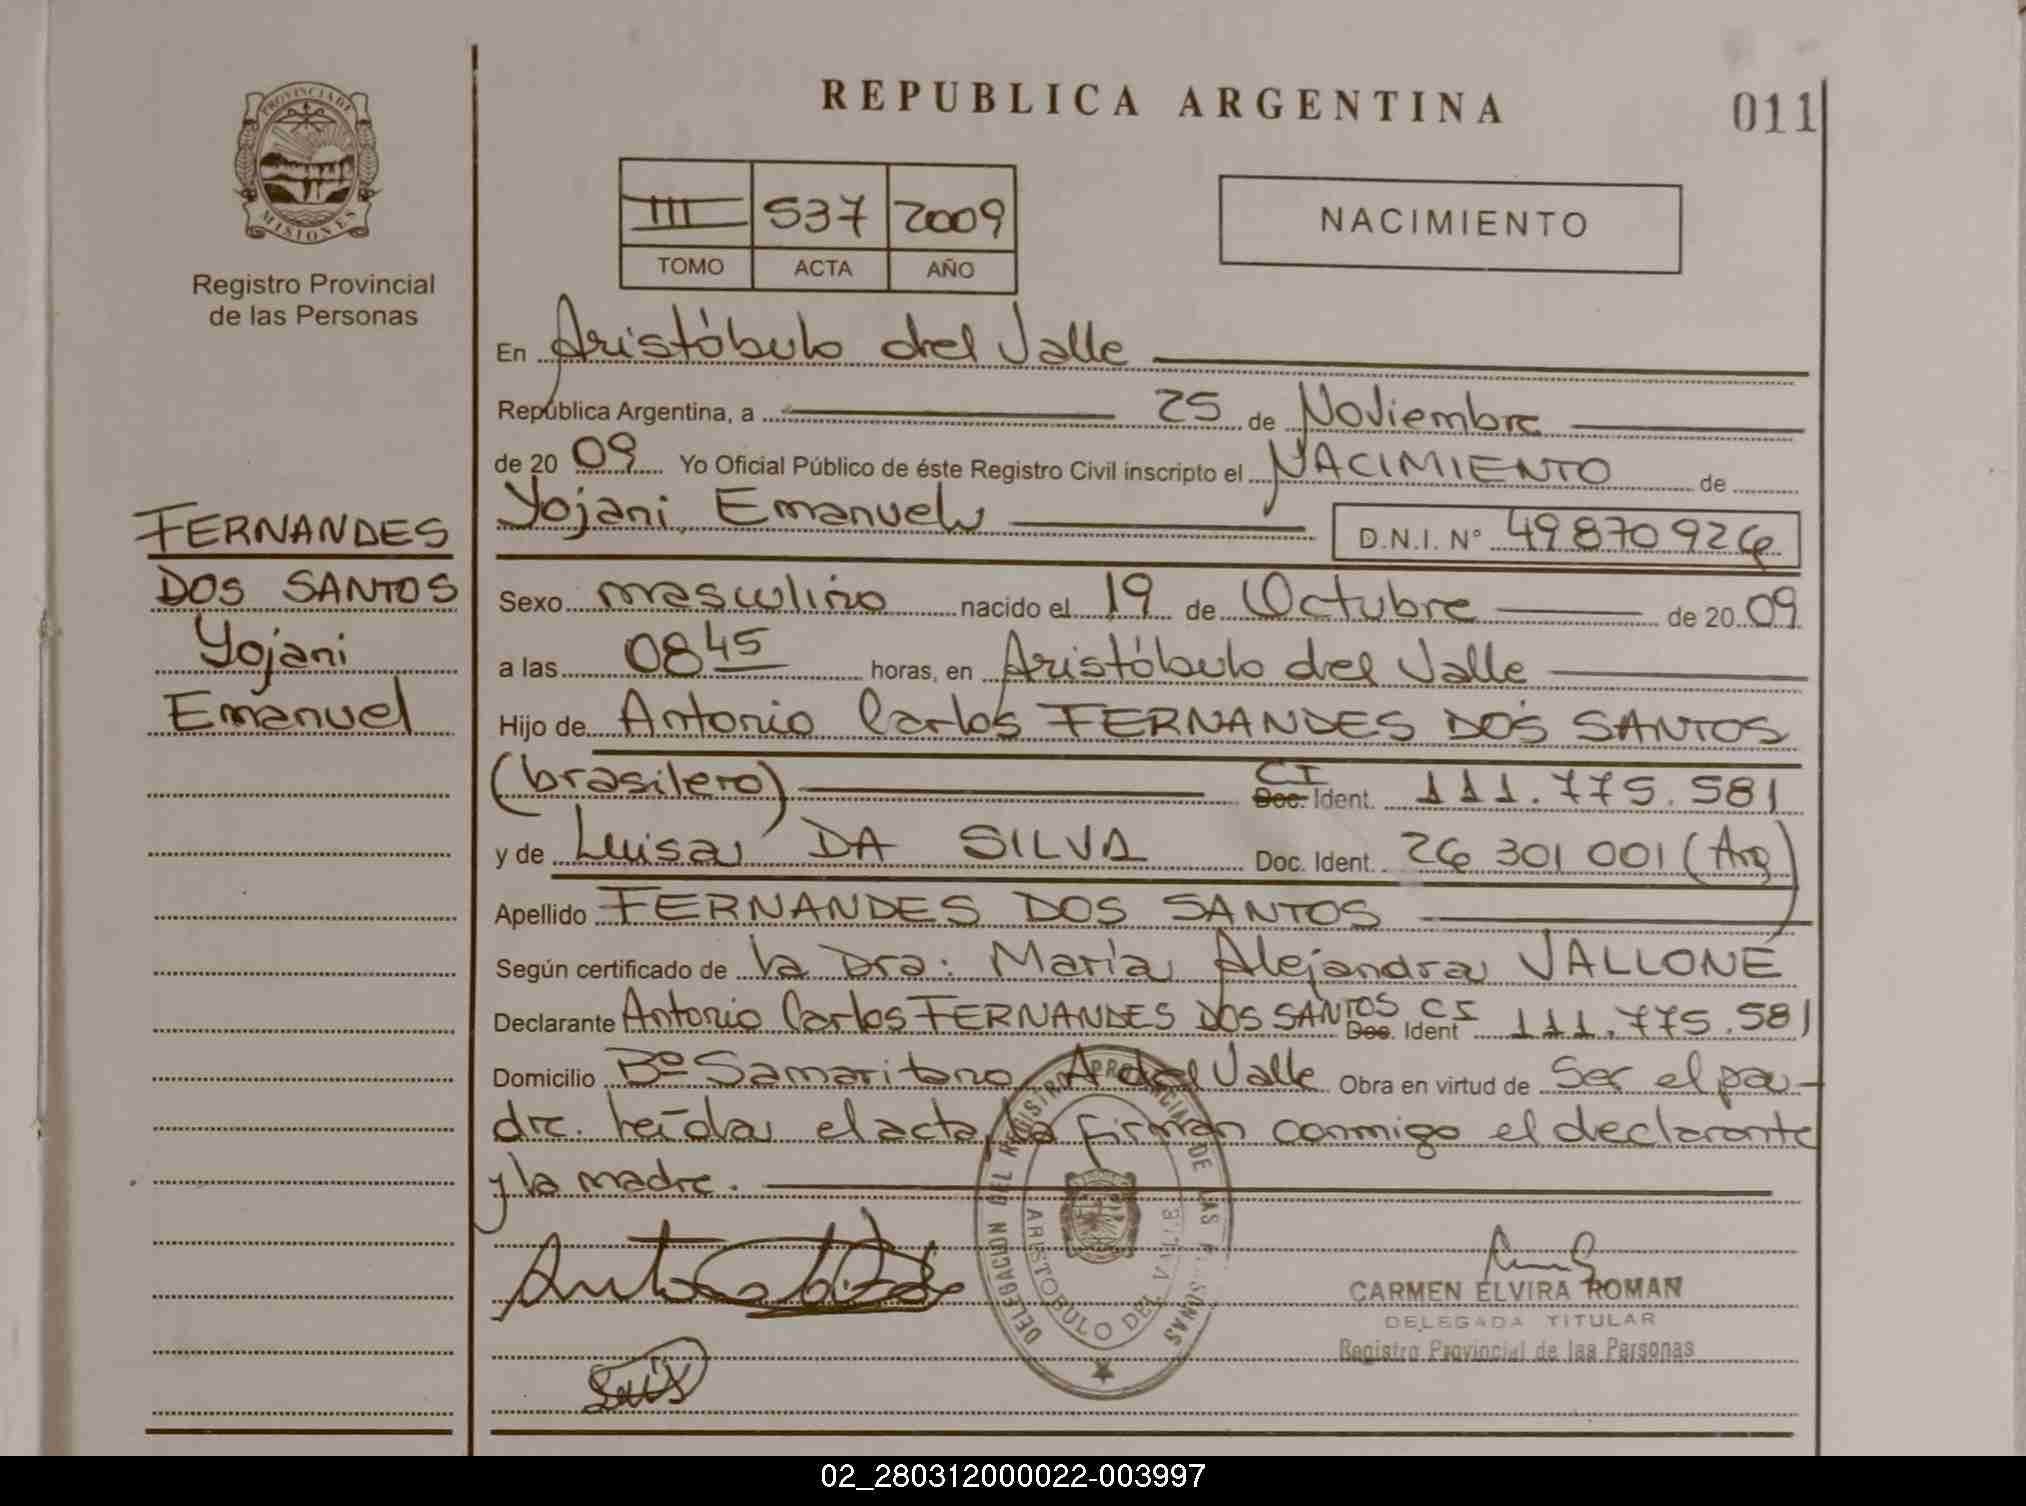 REPUBLICA ARGENTINA
011
PROVINCIA DE
MISIONES
Registro Provincial
de las Personas
III 537 2009
TOMO ACTA AÑO
NACIMIENTO
En Aristóbulo del Valle
República Argentina, a 25 de Noviembre
de 2009 Yo Oficial Público de éste Registro Civil inscripto el NACIMIENTO de
FERNANDES
DOS SANTOS
Yojani
Emanuel
Yojani Emanuel D.N.I. N° 49870926
Sexo masculino nacido el 19 de Octubre de 2009
a las 08 45 horas, en Aristóbulo del Valle
Hijo de Antonio Carlos FERNANDES DOS SANTOS
(brasilero) CI Doc. Ident. 111.775.581
y de Luisa DA SILVA Doc. Ident. 26 301 001 (Arg)
Apellido FERNANDES DOS SANTOS
Según certificado de la Dra. María Alejandra VALLONE
Declarante Antonio Carlos FERNANDES DOS SANTOS CI Doc. Ident 111.775.581
Domicilio Bº Samaritano A del Valle Obra en virtud de Ser el pa-
dre. leída el acta, la firman conmigo el declarante
y la madre.
DELEGACION DEL REGISTRO PROVINCIAL DE LAS PERSONAS
ARISTOBULO DEL VALLE
CARMEN ELVIRA ROMAN
DELEGADA TITULAR
Registro Provincial de las Personas
02_280312000022-003997